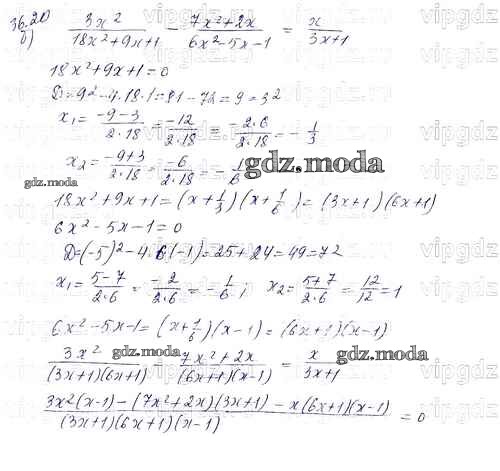 36.20
б) 3x²/(18x²+9x+1) - (7x²+2x)/(6x²-5x-1) = x/(3x+1)
18x²+9x+1=0
D=9²-4.18.1=81-72=9=3²
x₁=(-9-3)/(2.18)=-12/(2.18)=(-2.6)/(2.18)=-1/3
x₂=(-9+3)/(2.18)=-6/(2.18)=-1/6
gdz.moda
gdz.moda
18x²+9x+1=(x+1/3)(x+1/6)=(3x+1)(6x+1)
6x²-5x-1=0
D=(-5)²-4.6(-1)=25+24=49=7²
x₁=(5-7)/(2.6)=-2/(2.6)=-1/6; x₂=(5+7)/(2.6)=12/12=1
6x²-5x-1=(x+1/6)(x-1)=(6x+1)(x-1)
3x²/((3x+1)(6x+1)) - (7x²+2x)/((6x+1)(x-1)) = x/(3x+1)
gdz.moda gdz.moda
(3x²(x-1)-(7x²+2x)(3x+1)-x(6x+1)(x-1))/((3x+1)(6x+1)(x-1))=0